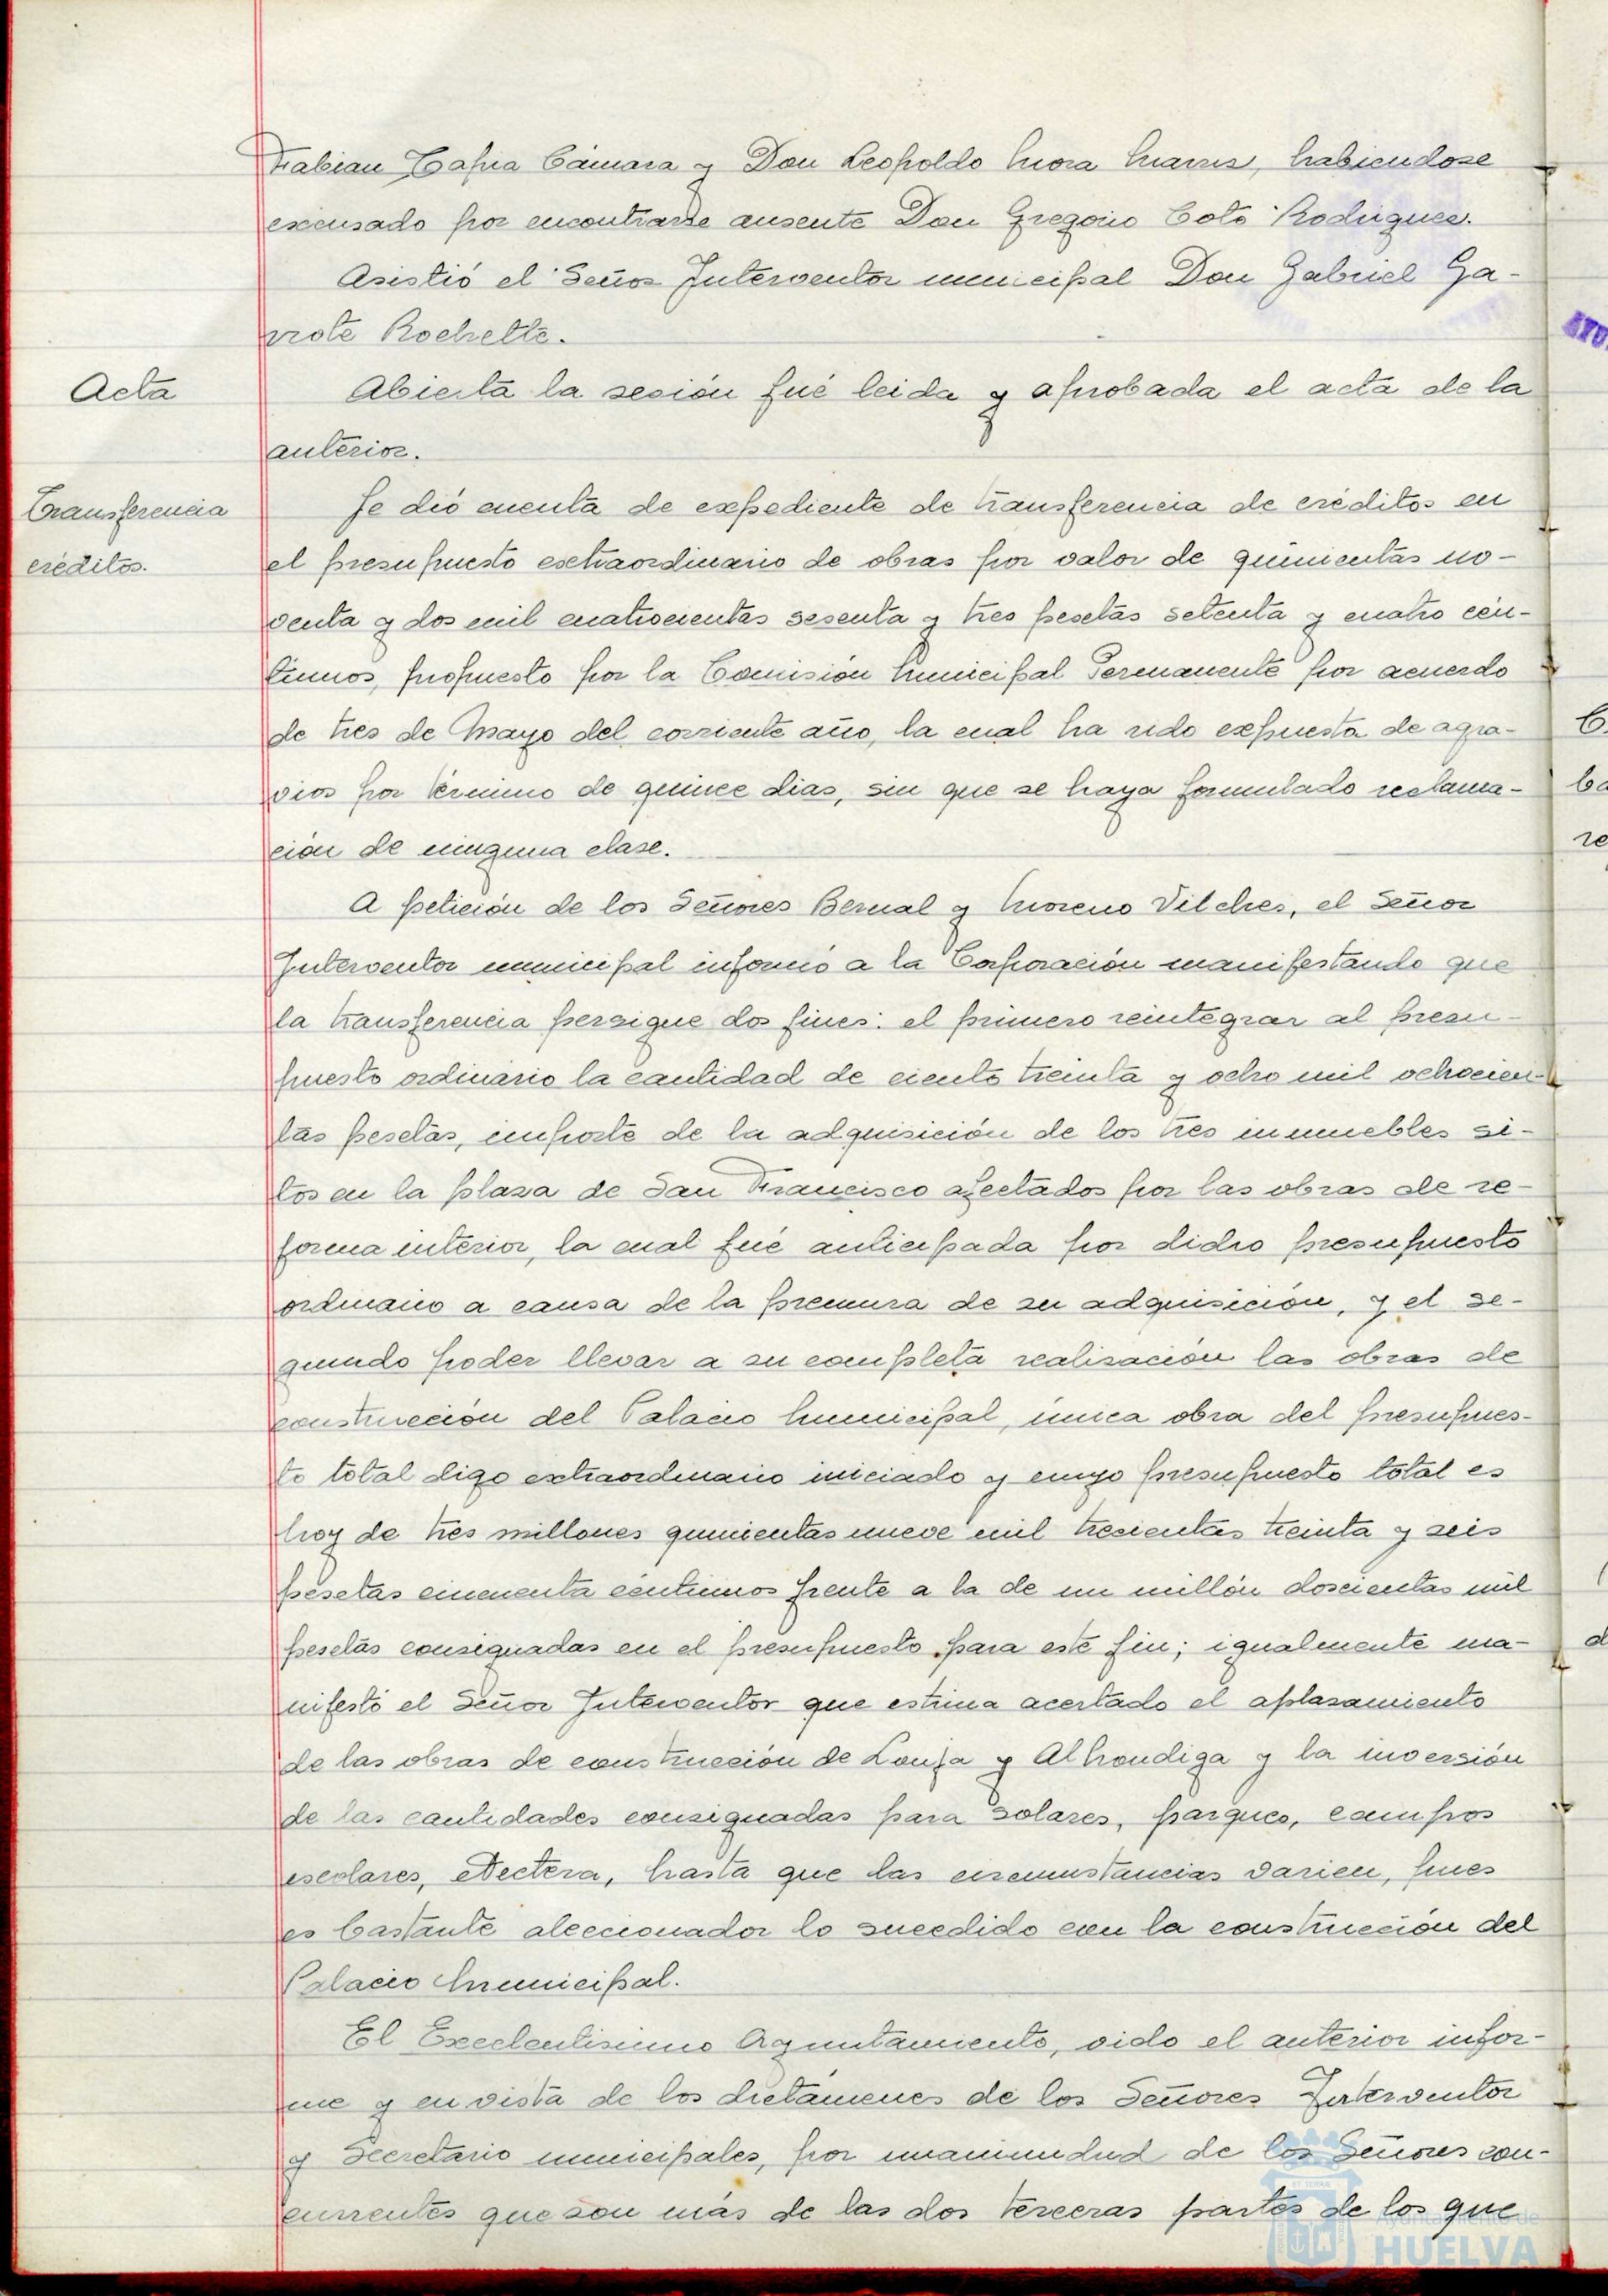 Fabian Tapia Cámara y Don Leopoldo Mora, habiendose
excusado por encontrarse ausente Don Gregorio Coto Rodriguez.
Asistió el Señor Interventor municipal Don Gabriel Ga-
rrote Rochelte.
Acta
Abierta la sesión fué leida y aprobada el acta de la
anterior.
Transferencia
créditos.
Se dió cuenta de expediente de transferencia de créditos en
el presupuesto extraordinario de obras por valor de quinientas no-
venta y dos mil cuatrocientas sesenta y tres pesetas setenta y cuatro cén-
timos, propuesto por la Comisión Municipal Permanente por acuerdo
de tres de Mayo del corriente año, la cual ha sido expuesta de agra-
vios por término de quince dias, sin que se haya formulado reclama-
ción de ninguna clase.
A petición de los Señores Bernal y Moreno Vilches, el Señor
Interventor municipal informó a la Corporación manifestando que
la transferencia persigue dos fines: el primero reintegrar al presu-
puesto ordinario la cantidad de ciento treinta y ocho mil ochocien-
tas pesetas, importe de la adquisición de los tres inmuebles si-
tos en la plaza de San Francisco afectados por las obras de re-
forma interior, la cual fué anticipada por dicho presupuesto
ordinario a causa de la premura de su adquisición, y el se-
gundo poder llevar a su completa realización las obras de
construcción del Palacio Municipal, única obra del presupues-
to total digo extraordinario iniciado y cuyo presupuesto total es
hoy de tres millones quinientas nueve mil trescientas treinta y seis
pesetas cincuenta céntimos frente a la de un millón doscientas mil
pesetas consignadas en el presupuesto para este fin; igualmente ma-
nifestó el Señor Interventor que estima acertado el aplazamiento
de las obras de construcción de Lonja y Alhondiga y la inversión
de las cantidades consignadas para solares, parques, campos
escolares, etectera, hasta que las circunstancias varien, pues
es bastante aleccionador lo sucedido con la construcción del
Palacio Municipal.
El Excelentisimo Ayuntamiento, oido el anterior infor-
me y en vista de los dictámenes de los Señores Interventor
y Secretario municipales, por unanimidad de los Señores con-
currentes que son más de las dos terceras partes de los que
Ayuntamiento de
HUELVA